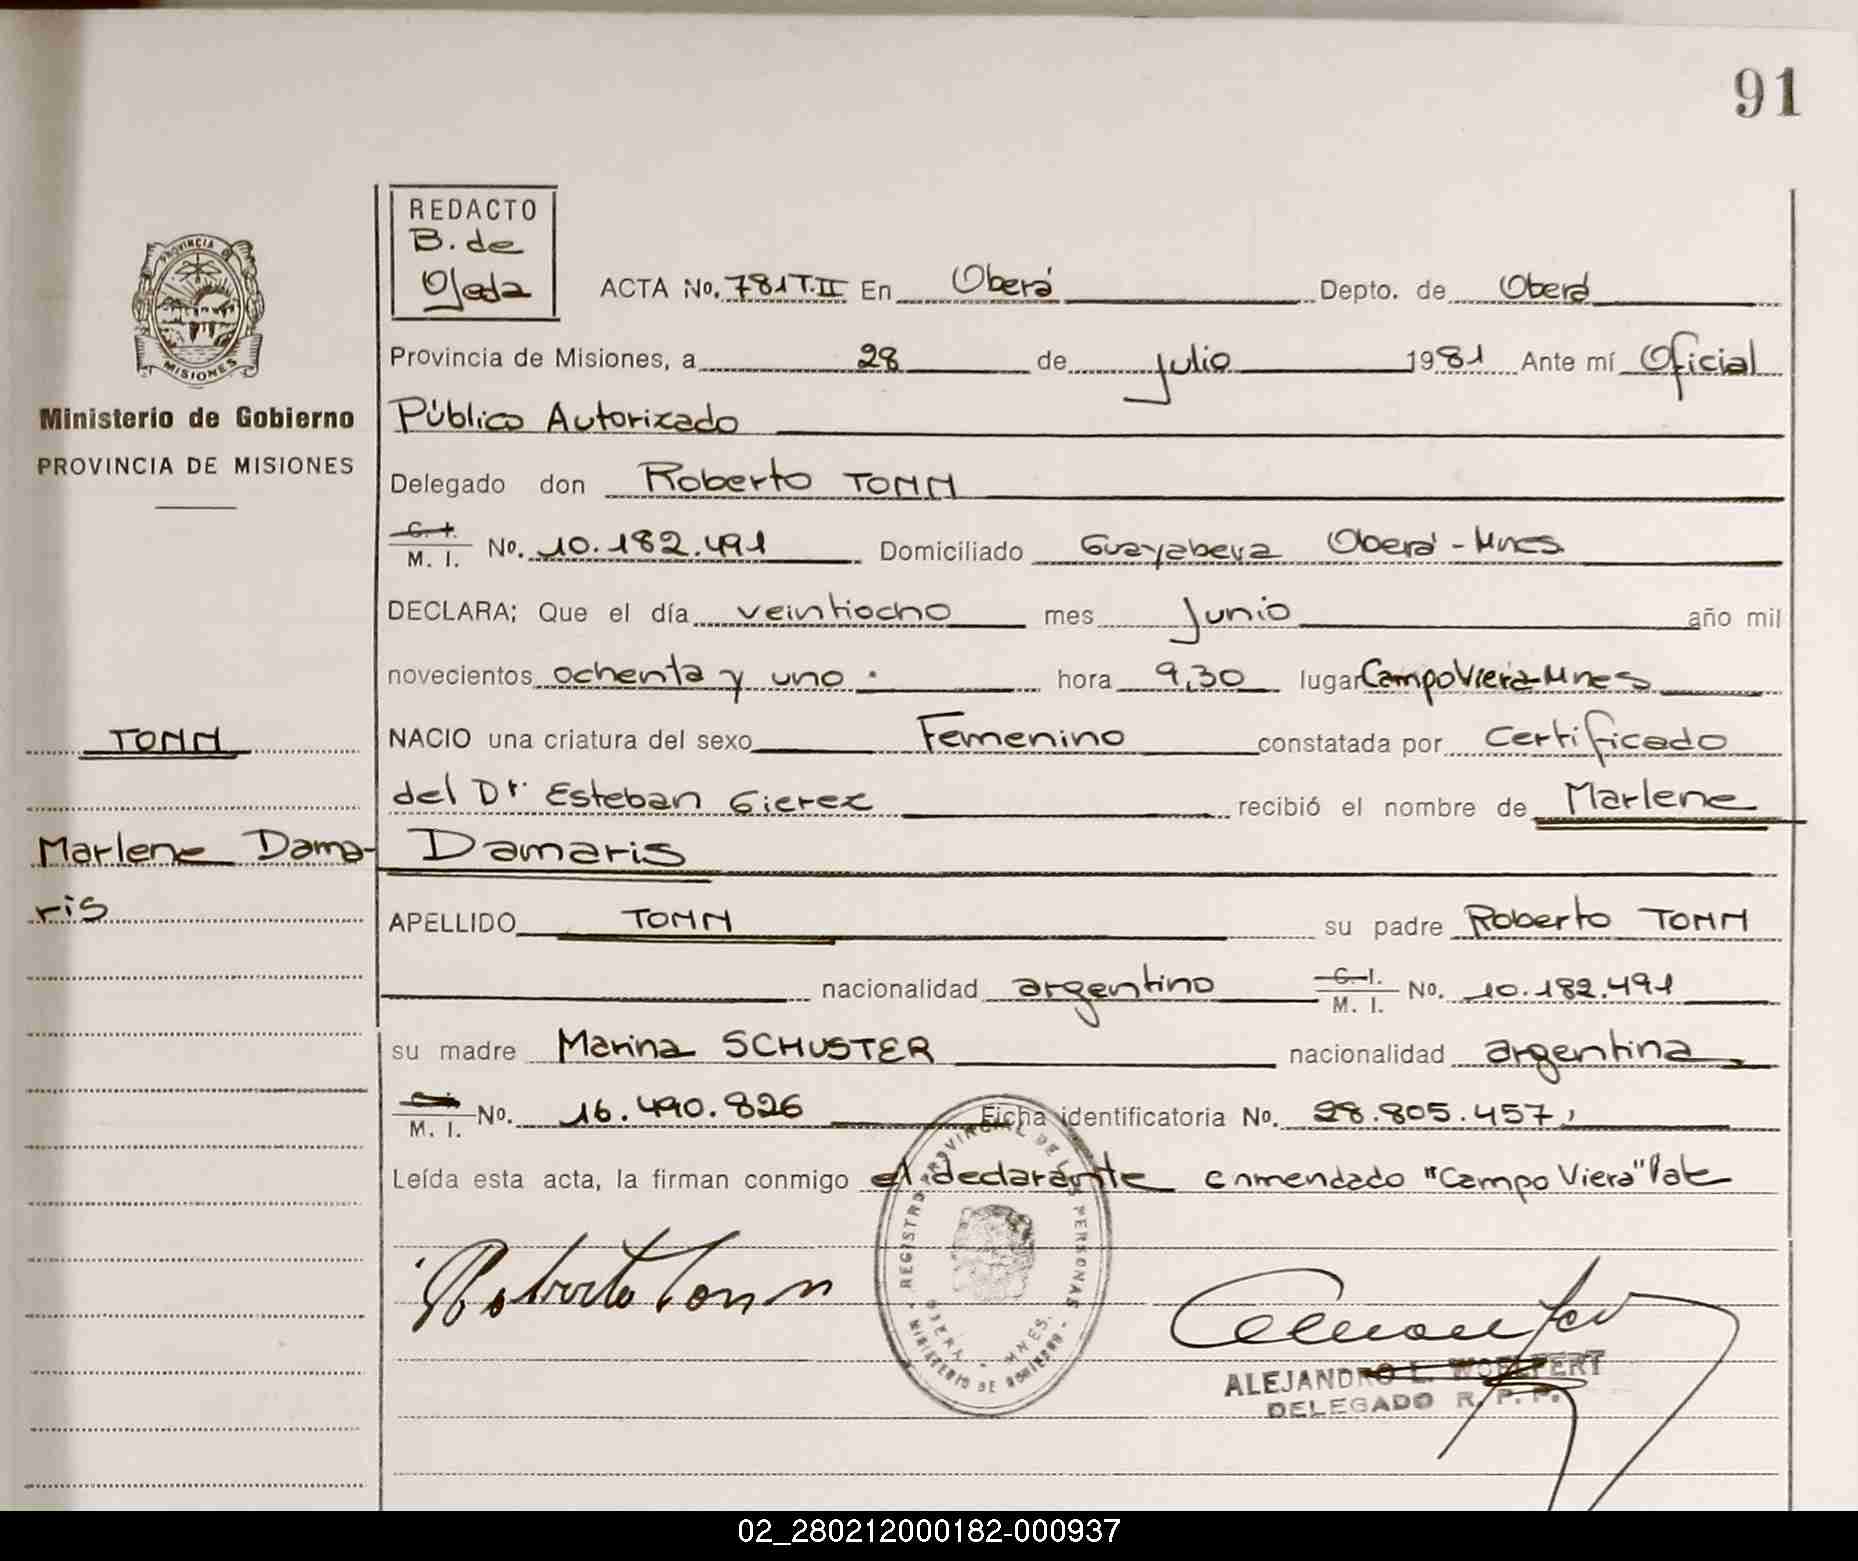 91
REDACTO
B. de
Ojeda
ACTA No. 781 T. II En Oberá Depto. de Oberá
Provincia de Misiones, a 28 de julio 1981 Ante mí Oficial
Ministerio de Gobierno
PROVINCIA DE MISIONES
Público Autorizado
Delegado don Roberto TONN
C. I.
M. I. No. 10.182.491 Domiciliado Guayabera Oberá - Mnes
DECLARA; Que el día veintiocho mes Junio año mil
novecientos ochenta y uno. hora 9,30 lugar Campo Viera - Mnes
TONN
NACIO una criatura del sexo Femenino constatada por Certificado
del Dr. Esteban Gierez recibió el nombre de Marlene
Marlene Dama-
ris
Damaris
APELLIDO TONN su padre Roberto TONN
nacionalidad argentino C. I.
M. I. No. 10.182.491
su madre Marina SCHUSTER nacionalidad argentina
M. I. No. 16.490.826 Ficha identificatoria No. 28.805.457,
Leída esta acta, la firman conmigo el declarante enmendado "Campo Viera" Vale
Roberto Tonn
PROVINCIA DE MISIONES
REGISTRO PROVINCIAL DE LAS PERSONAS
OBERA - MNES.
MINISTERIO DE GOBIERNO
ALEJANDRO L. WOELFERT
DELEGADO R. P. P.
02_280212000182-000937